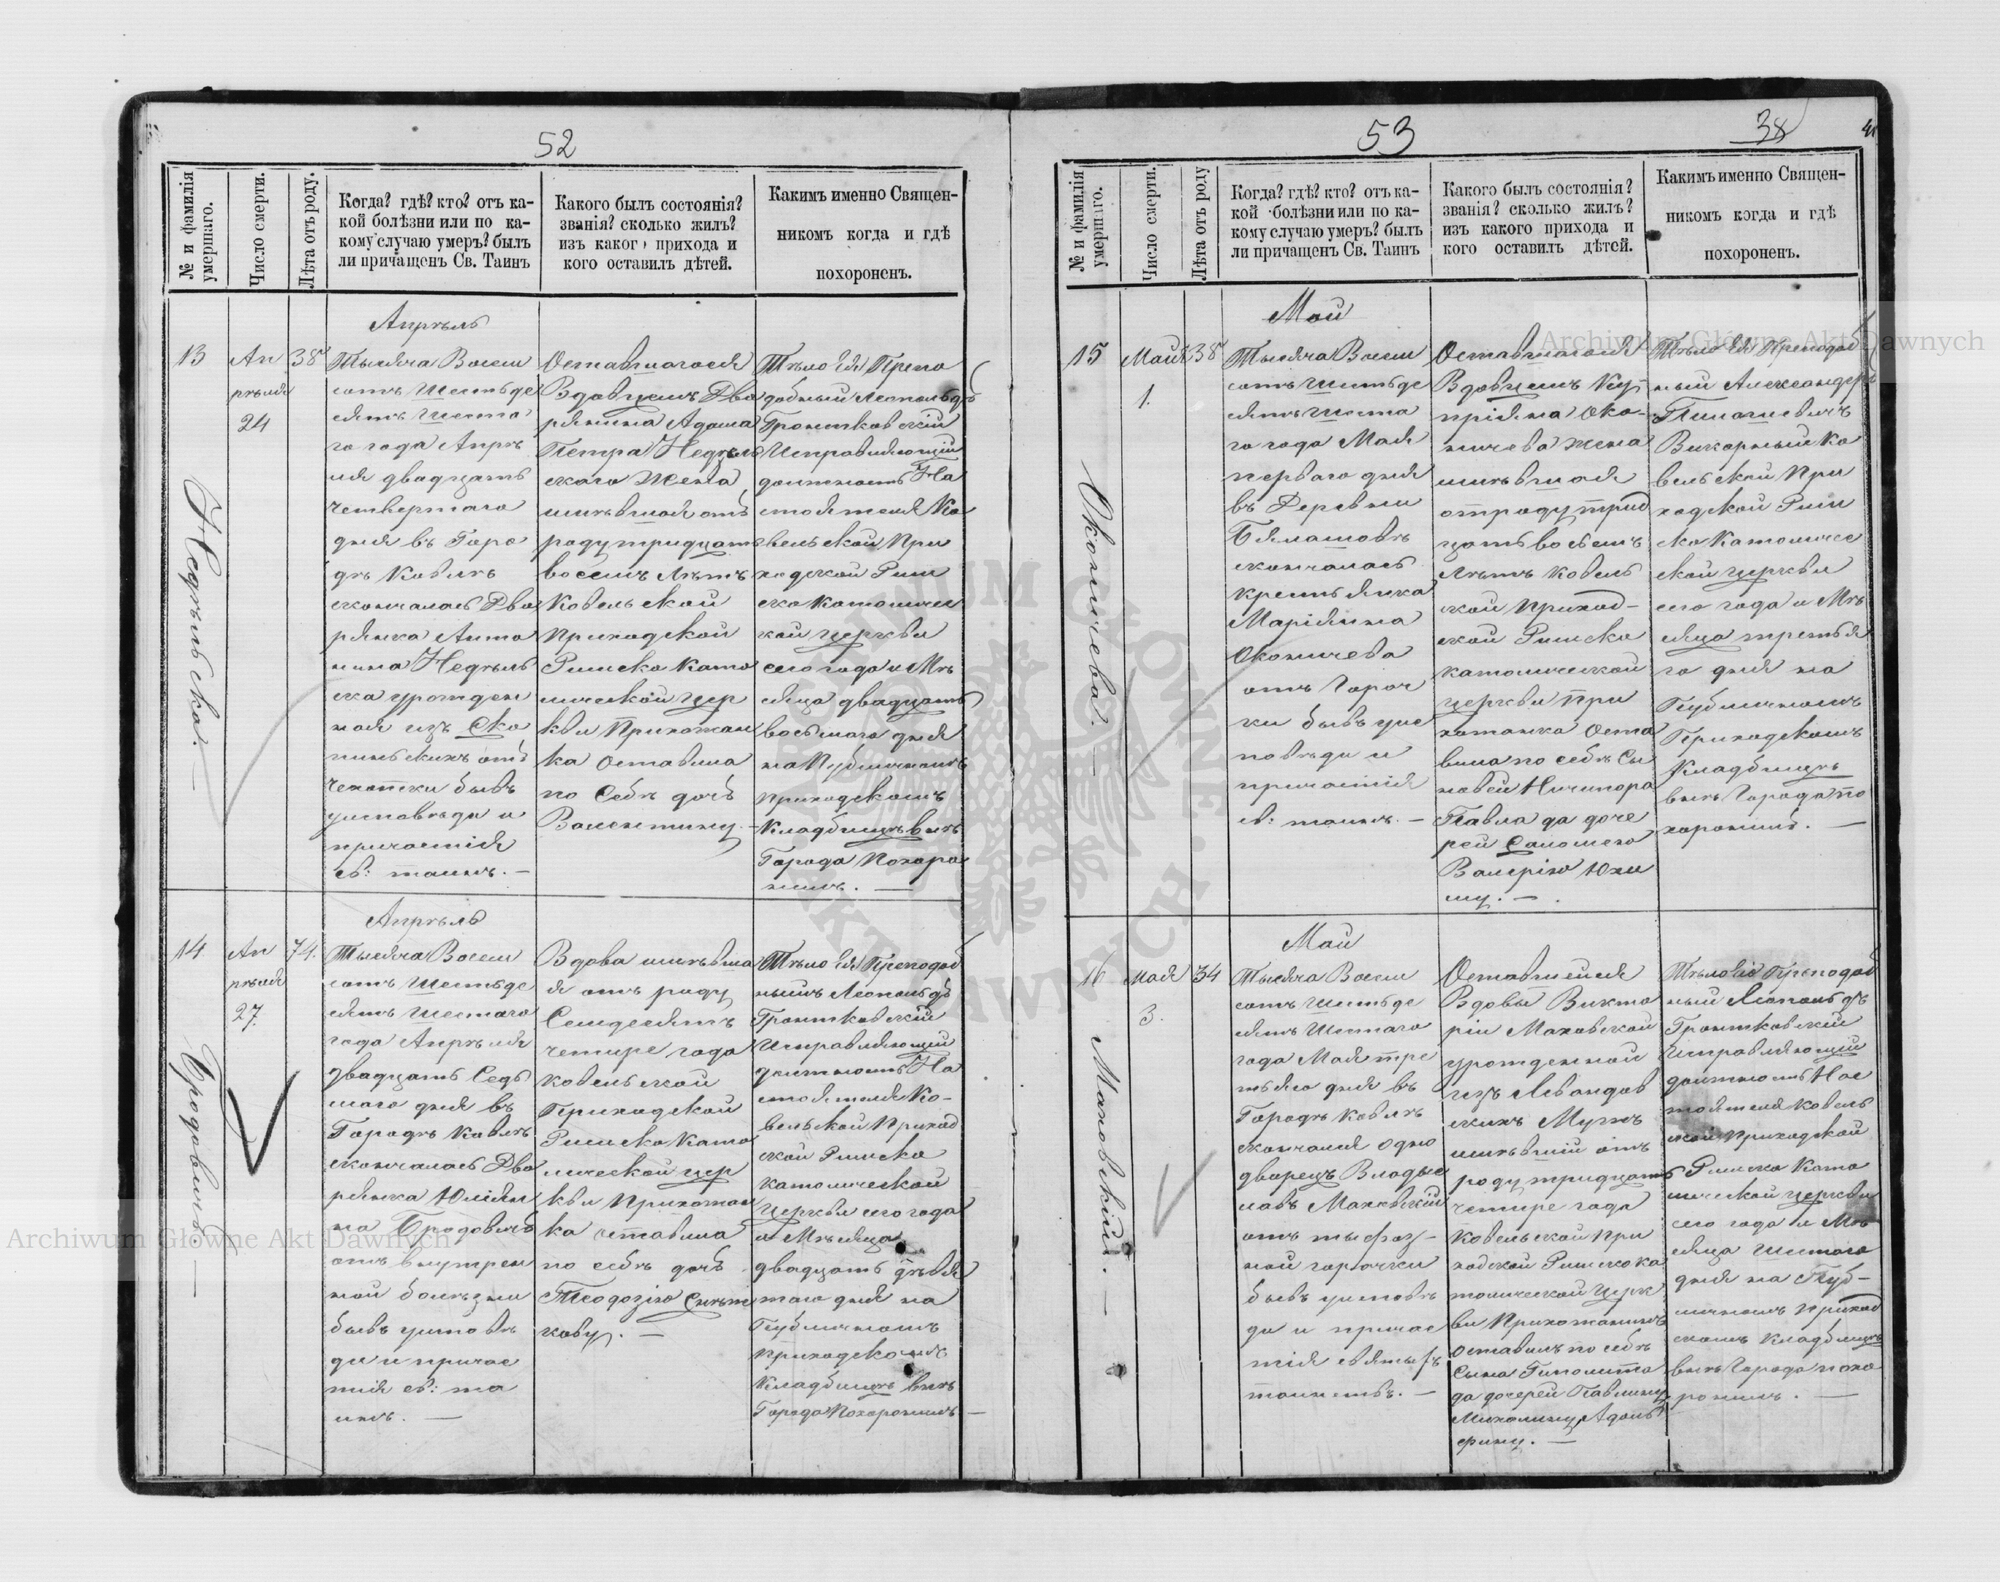 52
№ и фамилія умершаго.
Число смерти.
Лѣта отъ роду.
Когда? гдѣ? кто? отъ ка-
кой болѣзни или по ка-
кому случаю умеръ? былъ
ли причащенъ Св. Таинъ
Какого былъ состоянія?
званія? сколько жилъ?
изъ каког прихода и
кого оставилъ дѣтей.
Какимъ именно Священ-
никомъ когда и гдѣ
похороненъ.
13
Недѣльска. —
Ап
рѣля
24
38
Апрѣль
Тысяча Восем
сотъ Шестьде
сятъ Шеста
го года Апрѣ
ля двадцать
четвертаго
дня въ Горо
дѣ Ковлѣ
скончалась Дво
рянка Анто
нина Недѣль
ска урожден
ная изъ Ско
пинскихъ отъ
чахотки бывъ
исповѣда и
причастія
св: таинъ. —
Оставшагося
Вдовцемъ Дво
рянина Адама
Петра Недѣль
скаго Жена
имѣвшая отъ
роду тридцать
восемъ Лѣтъ
Ковельской
Приходской
Римско Като
лической Цер
кви Прихожан
ка Оставила
по Себѣ дочь
Валентину. —
Тѣло Ея Препо
добный Леопольдъ
Гронтковскій
Исправляющій
должность На
стоятеля Ко
вельской При
ходской Рим
ско Католичес
кой Церкви
сего года и Мѣ
сяца двадцать
восьмаго дня
на Публичномъ
Приходскомъ
Кладбищѣ внѣ
Города Похоро
нилъ. —
14
Бродовичъ —
Ап
рѣля
27.
74.
Апрѣль
Тысяча Восем
сотъ Шестьде
сятъ Шестаго
года Апрѣля
двадцать Седь
маго дня въ
Городѣ Ковлѣ
скончалась Дво
рянка Юліян
на Бродовичъ
отъ внутрен
ной болѣзни
бывъ исповѣ
да и причас
тія св: та
инъ. —
Вдова имѣвша
я отъ роду
Семдесятъ
четире года
Ковельской
Приходской
Римско Като
лической Цер
кви Прихожан
ка оставила
по себѣ дочь
Теодозію
кову. —
Тѣло Ея Преподоб
нымъ Леопольдъ
Гронтковскій
Исправляющій
должность На
стоятеля Ко-
вельской Приход
ской Римско
Католической
Церкви сего года
и Мѣсяца
двадцать девя
таго дня на
Публичномъ
Приходскомъ
Кладбищѣ внѣ
Города Похоронилъ —
53
38
№ и фамилія умершаго.
Число смерти.
Лѣта отъ роду
Когда? гдѣ? кто? отъ ка-
кой болѣзни или по ка-
кому случаю умеръ? былъ
ли причащенъ Св. Таинъ
Какого былъ состоянія?
званія? сколько жилъ?
изъ какого прихода и
кого оставилъ дѣтей.
Какимъ именно Священ-
никомъ когда и гдѣ
похороненъ.
15
Окончева. —
Май
1.
38
Май
Тысяча Восем
сотъ Шестьде
сятъ Шеста
го года Мая
перваго дня
въ Деревни
скончалась
крестьянка
Маріянна
Окончева
отъ Горяч
ки бывъ ис
повѣди и
причастія
св: таинъ. —
Оставшагося
Вдовцемъ Ку
прiяна Око-
ничева жена
имѣвшая
отроду трид
цать восьемъ
Лѣтъ Ковель
ской Приход-
ской Римско
католической
церкви При
хожанка Оста
вила по себѣ Сы
новей Ничипора
Павла да доче
рей Саломею
Валерію Юхи
му. —
Тѣло Ея Преподоб
ный Александеръ
Викарный Ко
вельской При
ходской Рим
ско Католичес
кой Церкви
сего года и Мѣ
сяца третья
го дня на
Публичномъ
Приходскомъ
Кладбищѣ
внѣ Города По
хоронилъ. —
16
Маховскій. —
Мая
3.
34
Май
Тысяча Восем
сотъ Шестьде
сятъ Шестаго
года Мая тре
тьяго дня въ
Городѣ Ковлѣ
скончался одно
дворецъ Владис
лавъ Маховскій
отъ тыфоз-
ной горячки
бывъ исповѣ
ди и причас
тія святыхъ
таинствъ. —
Оставшейся
Вдовы Викто
ріи Маховской
урожденной
изъ Левандов
скихъ Мужъ
имѣвшій отъ
роду тридцать
четире года
Ковельской При
ходской Римско ка
толической Церк
ви Прихожанинъ
Оставилъ по себѣ
Сына Гиполита
да дочерей Павлину
Михалину, Адоль
фину. —
Тѣло Его Преподоб
ный Леопольдъ
Гронтковскій
Исправляющій
должность Нас
тоятеля Ковель
ской Приходской
Римско Като
лической церкви
сего года и Мѣ
сяца Шестаго
дня на Пуб-
личномъ Приход
скомъ Кладбищѣ
внѣ Города похо
ронилъ. —
Archiwum Główne Akt Dawnych
Archiwum Główne Akt Dawnych
ARCHIWUM GŁÓWNE AKT DAWNYCH